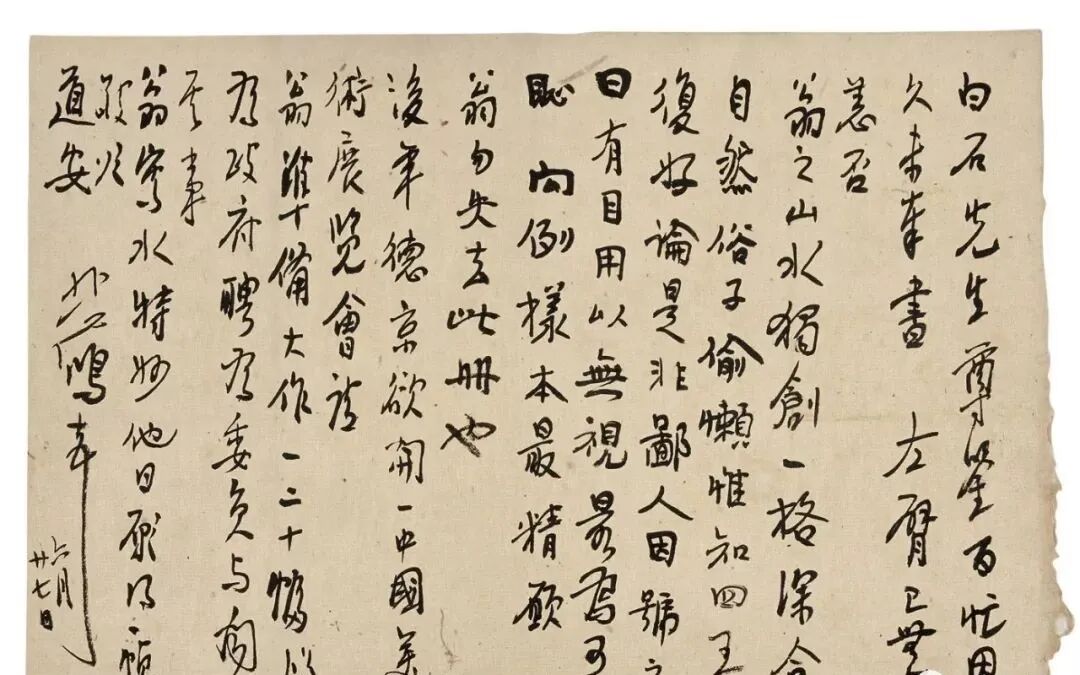 白石先生尊鑒百忙因
久未奉書 左臂已無
恙否
翁之山水獨創一格深合
自然俗子偷懶惟知四王
復好論是非鄙人因號之
曰有目用以無視最為可
恥 向例樣本最精願
翁勿失去此冊也
後年德京欲開一中國美
術展覽會請
翁準備大作一二十幅以
為政府聘為委員与聞
其事
翁寫水特妙他日願得一幀
敬頌
道安
悲鴻
六月
廿七日